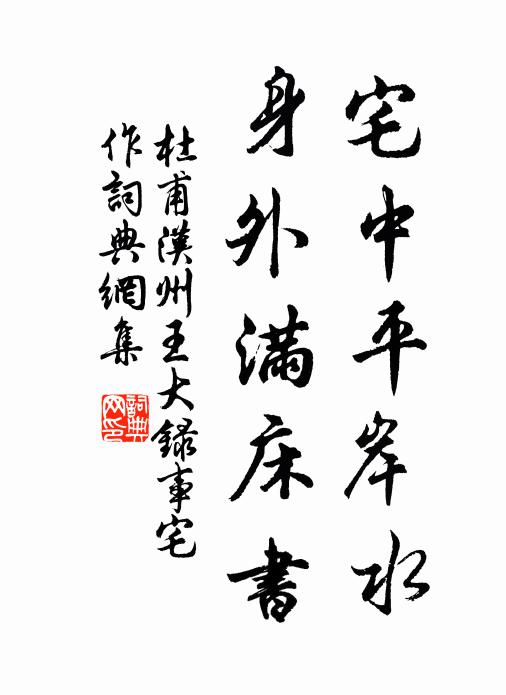 宅中平岸水
身外滿床書
杜甫漢州王大錄事宅
作詞典網集
詞典
网印